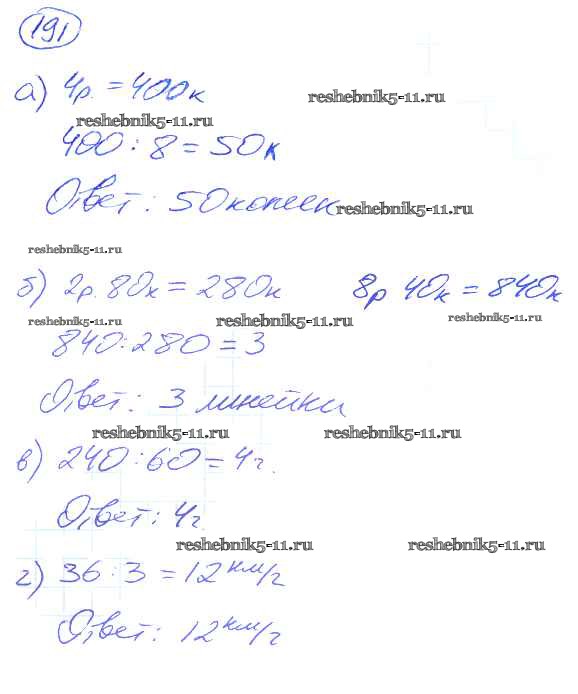 191
а) 4р. = 400к
reshebnik5-11.ru reshebnik5-11.ru
400 : 8 = 50к
Ответ: 50 копеек reshebnik5-11.ru
reshebnik5-11.ru
б) 2р. 80к = 280к 8р 40к = 840к
reshebnik5-11.ru reshebnik5-11.ru reshebnik5-11.ru
840 : 280 = 3
Ответ: 3 линейки
reshebnik5-11.ru reshebnik5-11.ru
в) 240 : 60 = 4г.
Ответ: 4г.
reshebnik5-11.ru reshebnik5-11.ru
г) 36 : 3 = 12 км/г
Ответ: 12 км/г